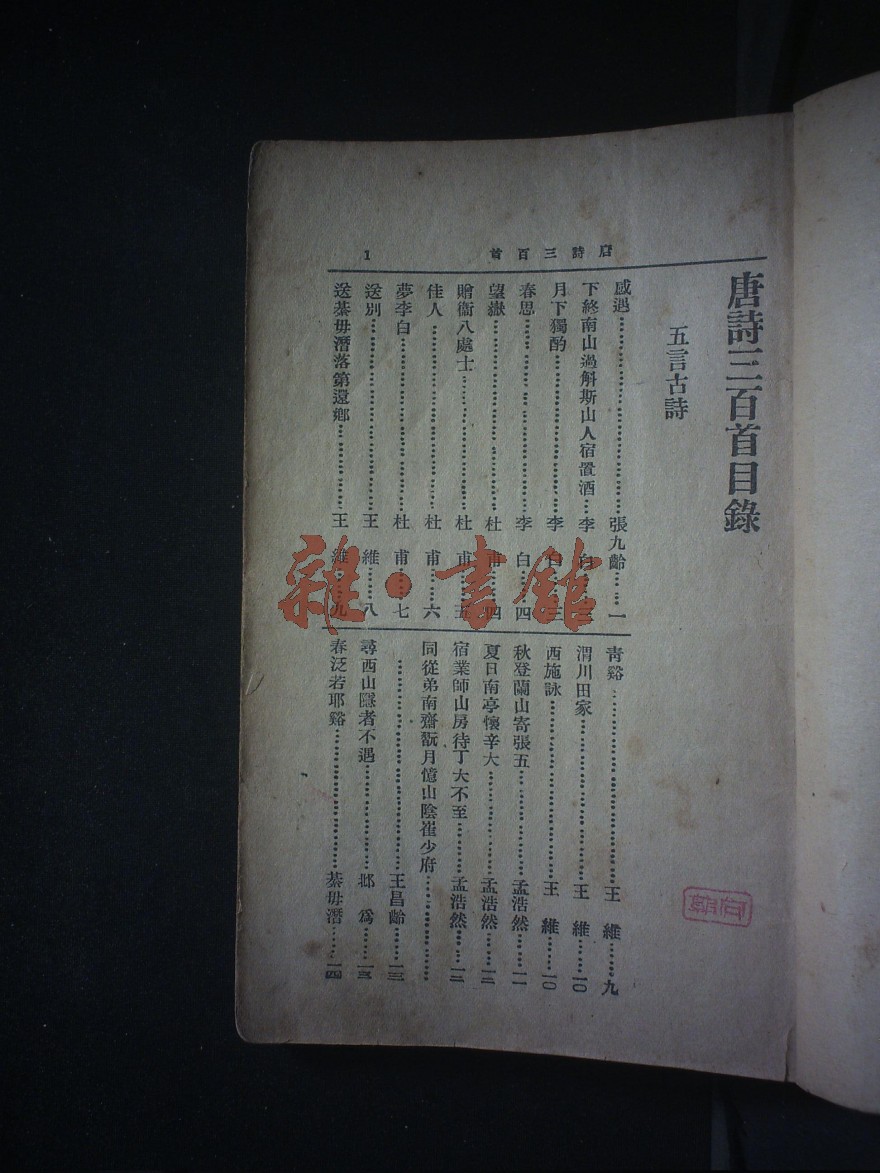 唐詩三百首
1
唐詩三百首目錄
五言古詩
感遇……張九齡……一
下終南山過斛斯山人宿置酒…李 白……三
月下獨酌……李 白……三
春思……李 白……四
望嶽……杜 甫……四
贈衞八處士……杜 甫……五
佳人……杜 甫……六
夢李白……杜 甫……七
送別……王 維……八
送綦毋潛落第還鄉……王 維……九
靑谿……王 維……九
渭川田家……王 維……一〇
西施詠……王 維……一〇
秋登蘭山寄張五……孟浩然……一一
夏日南亭懷辛大……孟浩然……一二
宿業師山房待丁大不至……孟浩然……一二
同從弟南齋翫月憶山陰崔少府……
……王昌齡……一三
尋西山隱者不遇……邱 爲……一三
春泛若耶谿……綦毋潛……一四
雜·書館